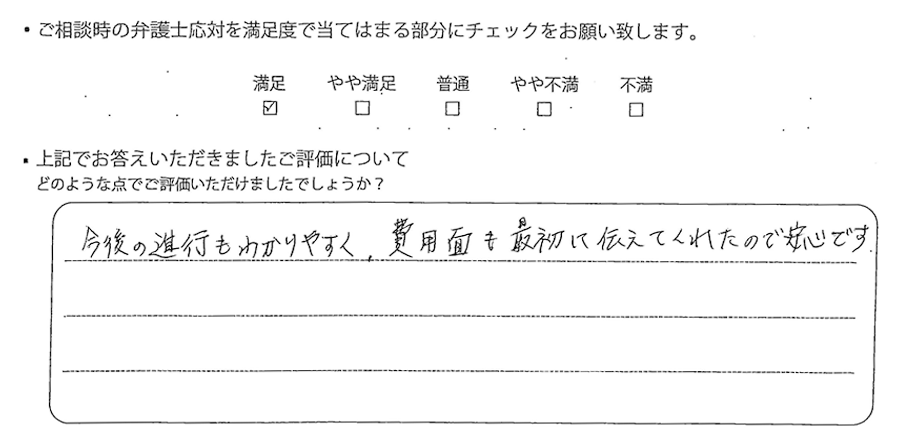 ・ご相談時の弁護士応対を満足度で当てはまる部分にチェックをお願い致します。
満足 やや満足 普通 やや不満 不満
☑ ☐ ☐ ☐ ☐
・上記でお答えいただきましたご評価について
どのような点でご評価いただけましたでしょうか？
今後の進行もわかりやすく、費用面も最初に伝えてくれたので安心です.